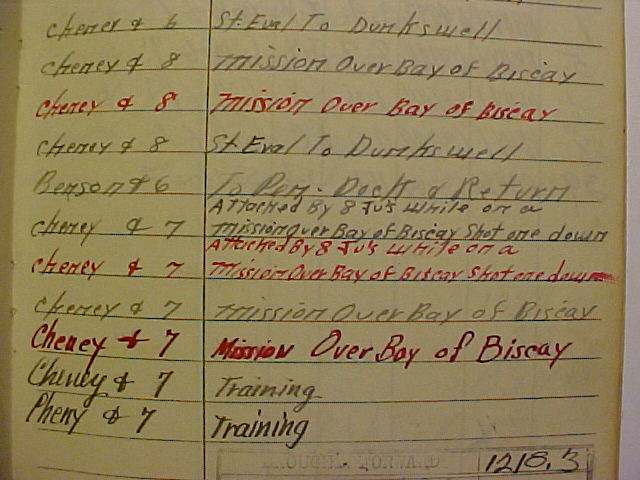 cheney & 6 St. Eval To Dunkswell
cheney & 8 mission Over Bay of Biscay
cheney & 8 mission Over Bay of Biscay
cheney & 8 St. Eval To Dunkswell
Benson & 6 To Pem. Dock & Return
Attacked By 8 Ju's While on a
cheney & 7 mission over Bay of Biscay Shot one down
Attacked By 8 Ju's While on a
cheney & 7 mission Over Bay of Biscay Shot one down
cheney & 7 mission Over Bay of Biscay
Cheney & 7 Mission Over Bay of Biscay
Cheney & 7 Training
Pheny & 7 Training
1218.3